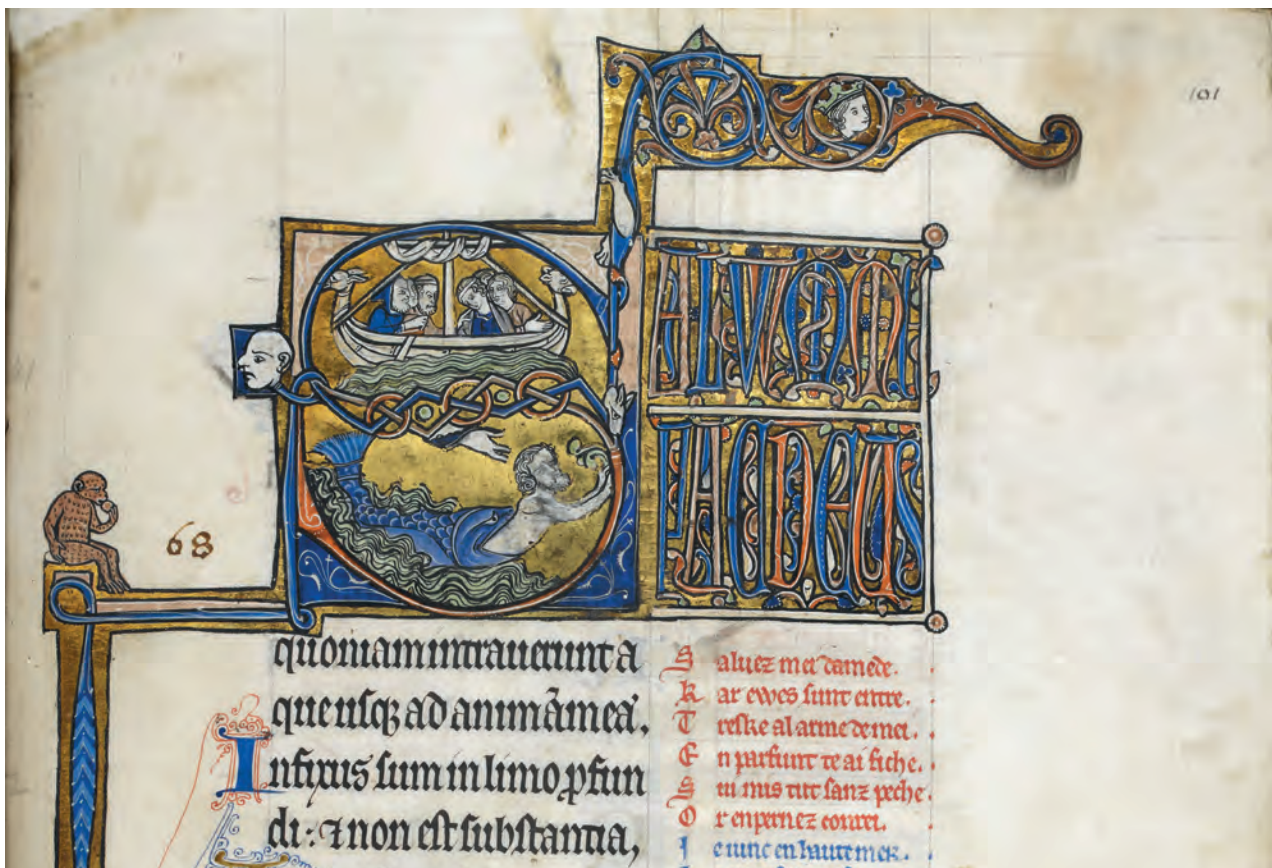 101
SALVUM ME
FAC DEUS
68
quoniam intrauerunt a
que usqꝫ ad animā meā.
Infixus sum in limo ꝓfun
di: ⁊ non est substantia,
Saluez mei damede.
Kar ewes sunt entre.
Treske al arme de mei.
En parfunt te ai fiche.
Sui mis tut sanz peche.
Or enpernez conrei.
Ieuinc en haute mer.